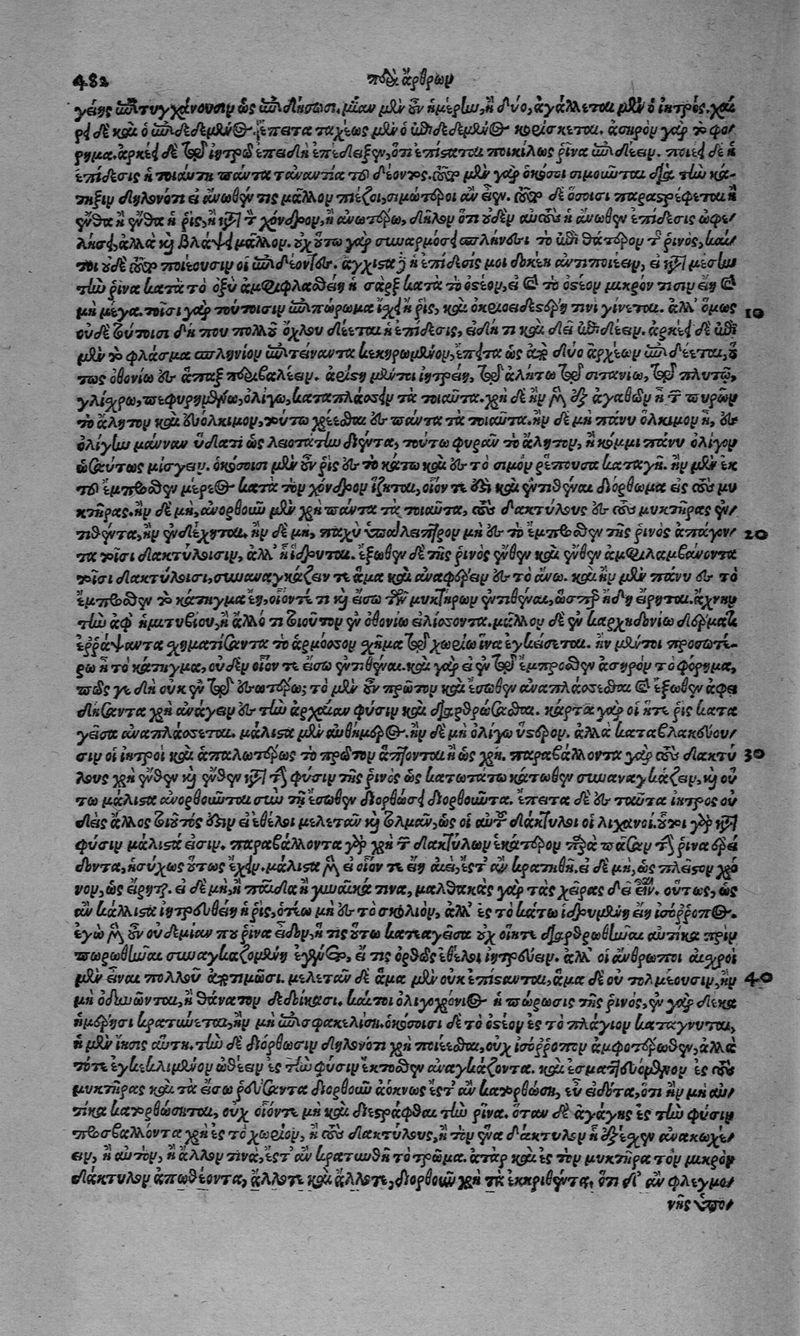 482 περὶ ἄρθρων
γέης ἐπιτυγχάνουσιν ὡς ἐπιδήσωσι. μίαν μὲν οὖν ἡμέρην, ἢ δύο, ἀγάλλεται μὲν ὁ ἰητρός. χαί/
ρει δὲ καὶ ὁ ἐπιδεδεμένος. ἔπειτα ταχέως μὲν ὁ ἐπιδεδεμένος κορίσκεται. ἀσηρὸν γὰρ τὸ φο/
ρημα. ἀρκέει δὲ τῷ ἰητρῷ ἐπειδὴ ἐπέδειξεν, ὅτι ἐπίσταται ποικίλως ῥῖνα ἐπιδέειν. ποιέει δὲ ἡ
ἐπίδεσις ἡ τοιαύτη πάντα τἀναντία τοῦ δέοντος. τοῦτο μὲν γὰρ ὁκόσοι σιμοῦνται διὰ τὴν κά/
τηξιν δηλονότι εἰ ἄνωθέν τις μᾶλλον πιέζοι, σιμώτεροι ἂν εἶεν. τοῦτο δὲ ὅσοισι παραστρέφεται ἢ
ἔνθα ἢ ἔνθα ἡ ῥὶς, ἢ κατὰ τὸν χόνδρον, ἢ ἀνωτέρω, δῆλον ὅτι οὐδὲν αὐτοὺς ἡ ἄνωθεν ἐπίδεσις ὠφε/
λήσει, ἀλλὰ καὶ βλάψει μᾶλλον. οὐχ οὕτω γὰρ συναρμόσει σπλήνεσι τὸ ἐπὶ θάτερον τῆς ῥινὸς, καί/
τοι οὐδὲ τοῦτο ποιέουσιν οἱ ἐπιδέοντες. ἄγχιστα δὲ ἡ ἐπίδεσίς μοι δοκέει ἄν τι ποιέειν, εἰ κατὰ μέσην
τὴν ῥῖνα κατὰ τὸ ὀξὺ ἀμφιφλασθείη ἡ σὰρξ κατὰ τὸ ὀστέον, εἰ καὶ τὸ ὀστέον μικρόν τι σιν εἴη καὶ
μὴ μέγα. τοῖσι γὰρ τούτοισιν ἐπιπώρωμα ἴσχει ἡ ῥὶς, καὶ ὀκριοειδεστέρη τινὶ γίνεται. ἀλλ' ὅμως 10
οὐδὲ τούτοισι δή που πολλοῦ ὄχλου δέεται ἡ ἐπίδεσις, εἰ δή τι καὶ δεῖ ἐπιδέειν. ἀρκέει δὲ ἐπὶ
μὲν τὸ φλάσμα σπληνίον ἐπιτείναντα κεκηρωμένον, ἔπειτα ὡς ἀπὸ δύο ἀρχέων ἐπιδέεται, οὕ
τως ὀθονίῳ ἐς ἅπαξ περιβαλέειν. ἀρίστη μέντοι ἰητρείη, τῷ ἀλήτῳ τῷ σιτανίῳ, τῷ πλυτῷ,
γλίσχρῳ, πεφυρημένῳ, ὀλίγῳ, καταπλάσσειν τὰ τοιαῦτα. χρὴ δὲ ἢν μὲν ἐξ ἀγαθῶν ᾖ τῶν πυρῶν
τὸ ἄλητον καὶ εὐόλκιμον, τούτῳ χρέεσθαι ἐς πάντα τὰ τοιαῦτα. ἢν δὲ μὴ πάνυ ὅλκιμον ᾖ, ἐς
ὀλίγην μάνναν ὕδατι ὡς λειοτάτην διέντα, τούτῳ φυρᾶν τὸ ἄλητον, ἢ κόμμι πάνυ ὀλίγον
ὡσαύτως μίσγειν. ὁκόσοισι μὲν οὖν ῥὶς ἐς τὸ κάτω καὶ ἐς τὸ σιμὸν ῥέπουσα καταγῇ. ἢν μὲν ἐκ
τοῦ ἔμπροσθεν μέρεος κατὰ τὸν χόνδρον ἵζηται, οἷόν τέ ἐστι καὶ ἐντιθέναι διόρθωμα εἰς τοὺς μυ
κτῆρας. ἢν δὲ μὴ, ἀνορθοῦν μὲν χρὴ πάντα τὰ τοιαῦτα, τοὺς δακτύλους ἐς τοὺς μυκτῆρας ἐν/
τιθέντα, ἢν ἐνδέχηται. ἢν δὲ μὴ, παχὺ ὑπάλειπτρον μὴ ἐς τὸ ἔμπροσθεν τῆς ῥινὸς ἀπάγον/ 20
τα τοῖσι δακτύλοισιν, ἀλλ' ᾗ ἵδρυται. ἔξωθεν δὲ τῆς ῥινὸς ἔνθεν καὶ ἔνθεν ἀμφιλαμβάνοντα
τοῖσι δακτύλοισι, συναναγκάζειν τε ἅμα καὶ ἀναφέρειν ἐς τὸ ἄνω. καὶ ἢν μὲν πάνυ ἐς τὸ
ἔμπροσθεν τὸ κάτηγμα ἔῃ, οἷόντέ τι καὶ ἔσω τῶν μυκτήρων ἐντιθέναι, ὥσπερ ἤδη εἴρηται. ἄχνην
τὴν ἀφ' ἡμιτυβίου, ἢ ἄλλό τι τοιοῦτον ἐν ὀθονίῳ εἱλίσσοντα. μᾶλλον δὲ ἐν καρχηδονίῳ δέρματι
ἐρράψαντα σχηματίσαντα τὸ ἁρμόσσον σχῆμα τῷ χωρίῳ ἵνα ἐγκείσεται. ἢν μέντοι προσωτέ/
ρω ᾖ τὸ κάτηγμα, οὐδὲν οἷόν τε ἔσω ἐντιθέναι. καὶ γὰρ εἰ ἐν τῷ ἔμπροσθεν ἀσηρὸν τὸ φόρημα,
πῶς γε δὴ οὐκ ἐν τῷ ἐσωτέρω; τὸ μὲν οὖν πρῶτον καὶ ἔσωθεν ἀναπλάσσεσθαι καὶ ἔξωθεν ἀφει
δήσαντα χρὴ ἀνάγειν ἐς τὴν ἀρχαίαν φύσιν καὶ διορθώσασθαι. κάρτα γὰρ οἵη τε ῥὶς κατα
γεῖσα ἀναπλάσσεται. μάλιστα μὲν αὐθημερὸς. ἢν δὲ μὴ ὀλίγῳ ὕστερον. ἀλλὰ καταβλακεύου/
σιν οἱ ἰητροὶ καὶ ἁπαλωτέρως τὸ πρῶτον ἅπτονται ἢ ὡς χρή. παραβάλλοντα γὰρ τοὺς δακτύ 30
λους χρὴ ἔνθεν καὶ ἔνθεν κατὰ τὴν φύσιν τῆς ῥινὸς ὡς κατωτάτω κάτωθεν συναναγκάζειν, καὶ οὕ
τω μάλιστα ἀνορθοῦται σὺν τῇ ἔσωθεν διορθώσει διορθοῦντα. ἔπειτα δὲ ἐς ταῦτα ἰητρὸς οὐ
δεὶς ἄλλος τοιοῦτός ἐστιν εἰ ἐθέλοι μελετᾶν καὶ τολμᾶν, ὡς οἱ αὐτοῦ δάκτυλοι οἱ λιχανοί. οὗτοι γὰρ κατὰ
φύσιν μάλιστά εἰσιν. παραβάλλοντα γὰρ χρὴ τῶν δακτύλων ἑκάτερον παρὰ πᾶσαν τὴν ῥῖνα ἐρεί
δοντα, ἡσύχως οὕτως ἔχειν. μάλιστα μὲν εἰ οἷόν τε εἴη αἰεὶ, ἔστ' ἂν κρατηθῇ. εἰ δὲ μὴ, ὡς πλεῖστον χρό
νον, ὡς εἴρηται. εἰ δὲ μὴ, ἢ παῖδα ἢ γυναῖκά τινα, μαλθακὰς γὰρ τὰς χεῖρας δεῖ εἶναι. οὕτως, ὡς
ἂν κάλλιστα ἰητρευθείη ἡ ῥὶς, ὅτεῳ μὴ ἐς τὸ σκολιὸν, ἀλλ' ἐς τὸ κάτω ἱδρυμένη εἴη ἰσόρροπος.
ἐγὼ μὲν οὖν οὐδεμίαν που ῥῖνα εἶδον, ἥ τις οὕτω καταγεῖσα οὐχ οἵη τε διορθωθῆναι αὐτίκα πρὶν
πωρωθῆναι συναγκαζομένη ἐγένετο, εἴ τις ὀρθῶς ἐθέλοι ἰητρεύειν. ἀλλ' οἱ ἄνθρωποι αἰσχροὶ
μὲν εἶναι πολλοῦ ἀποτιμῶσι. μελετᾶν δὲ ἅμα μὲν οὐκ ἐπίστανται, ἅμα δὲ οὐ τολμέουσιν, ἢν 40
μὴ ὀδυνῶνται, ἢ θάνατον δεδοίκασι. καί τοι ὀλιγοχρόνιος ἡ πώρωσις τῆς ῥινός, ἐν γὰρ δέκα
ἡμέρῃσι κρατύνεται, ἢν μὴ ἐπισφακελίσῃ. ὁκόσοισι δὲ τὸ ὀστέον ἐς τὸ πλάγιον κατάγνυται,
ἡ μὲν ἴησις αὐτή. τὴν δὲ διόρθωσιν δηλονότι χρὴ ποιέεσθαι, οὐχ ἰσόρροπον ἀμφοτέρωθεν, ἀλλὰ
τό τε ἐγκεκλιμένον ὠθέειν ἐς τὴν φύσιν ἔκτοσθεν ἀναγκάζοντα. καὶ ἐσματευόμενον ἐς τοὺς
μυκτῆρας καὶ τὰ εἴσω ῥεύσαντα διορθοῦν ἀόκνως ἔστ' ἂν κατορθώσῃ, εὖ εἰδότα, ὅτι ἢν μὴ αὐ/
τίκα κατορθώσηται, οὐχ οἷόντε μὴ καὶ διεστράφθαι τὴν ῥῖνα. ὅταν δὲ ἀγάγῃς ἐς τὴν φύσιν
προσβάλλοντα χρὴ ἐς τὸ χωρίον, ἢ τοὺς δακτύλους, ἢ τὸν ἕνα δάκτυλον ᾗ ἐξέσχεν ἀνακωχέ/
ειν, ἢ αὐτὸν, ἢ ἄλλον τινὰ, ἔστ' ἂν κρατυνθῇ τὸ τρῶμα. ἀτὰρ καὶ ἐς τὸν μυκτῆρα τὸν μικρὸν
δάκτυλον ἀπωθέοντα, ἄλλοτε καὶ ἄλλοτε, διορθοῦν χρὴ τὰ ἐκκριθέντα, ὅτι δ' ἂν φλεγμο/
νῆς ὑπο/